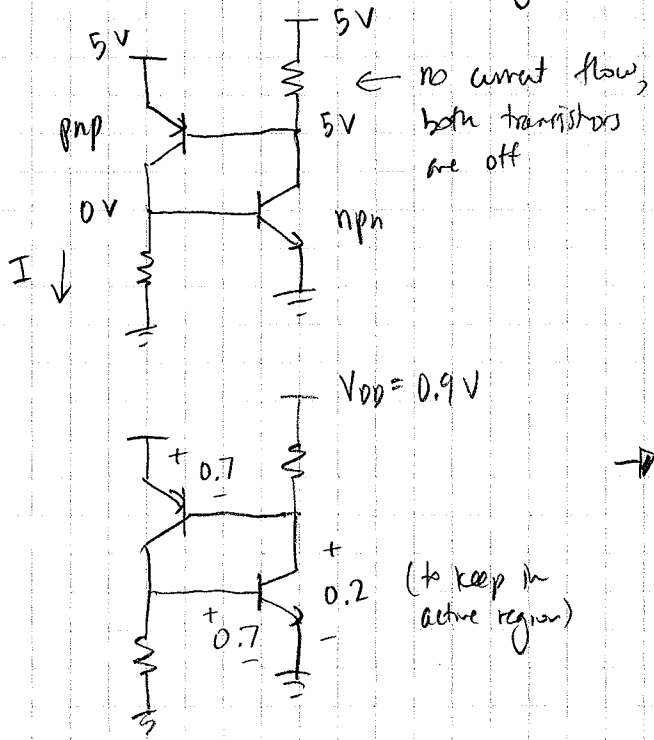 5V
5V
← no current flow,
both transistors
are off
pnp
5V
0V
npn
I ↓
VDD = 0.9 V
+
0.7
-
+
0.2
-
(to keep in
active region)
+
0.7
-